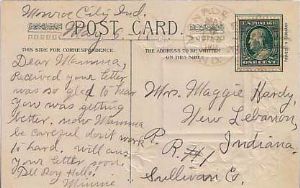 Monroe City Ind.
POST CARD
THIS SIDE FOR CORRESPONDENCE.
THE ADDRESS TO BE WRITTEN ON THIS SIDE
Dear Mamma,
Received your letter
was so glad to hear
you was getting
better, now Mamma
be careful don't work
to hard. will ans
your letter soon.
Tell Roy Hello.
Minnie
Mrs. Maggie Hardy,
New Lebanon,
Indiana.
R. R. #1
Sullivan Co.
ONE CENT